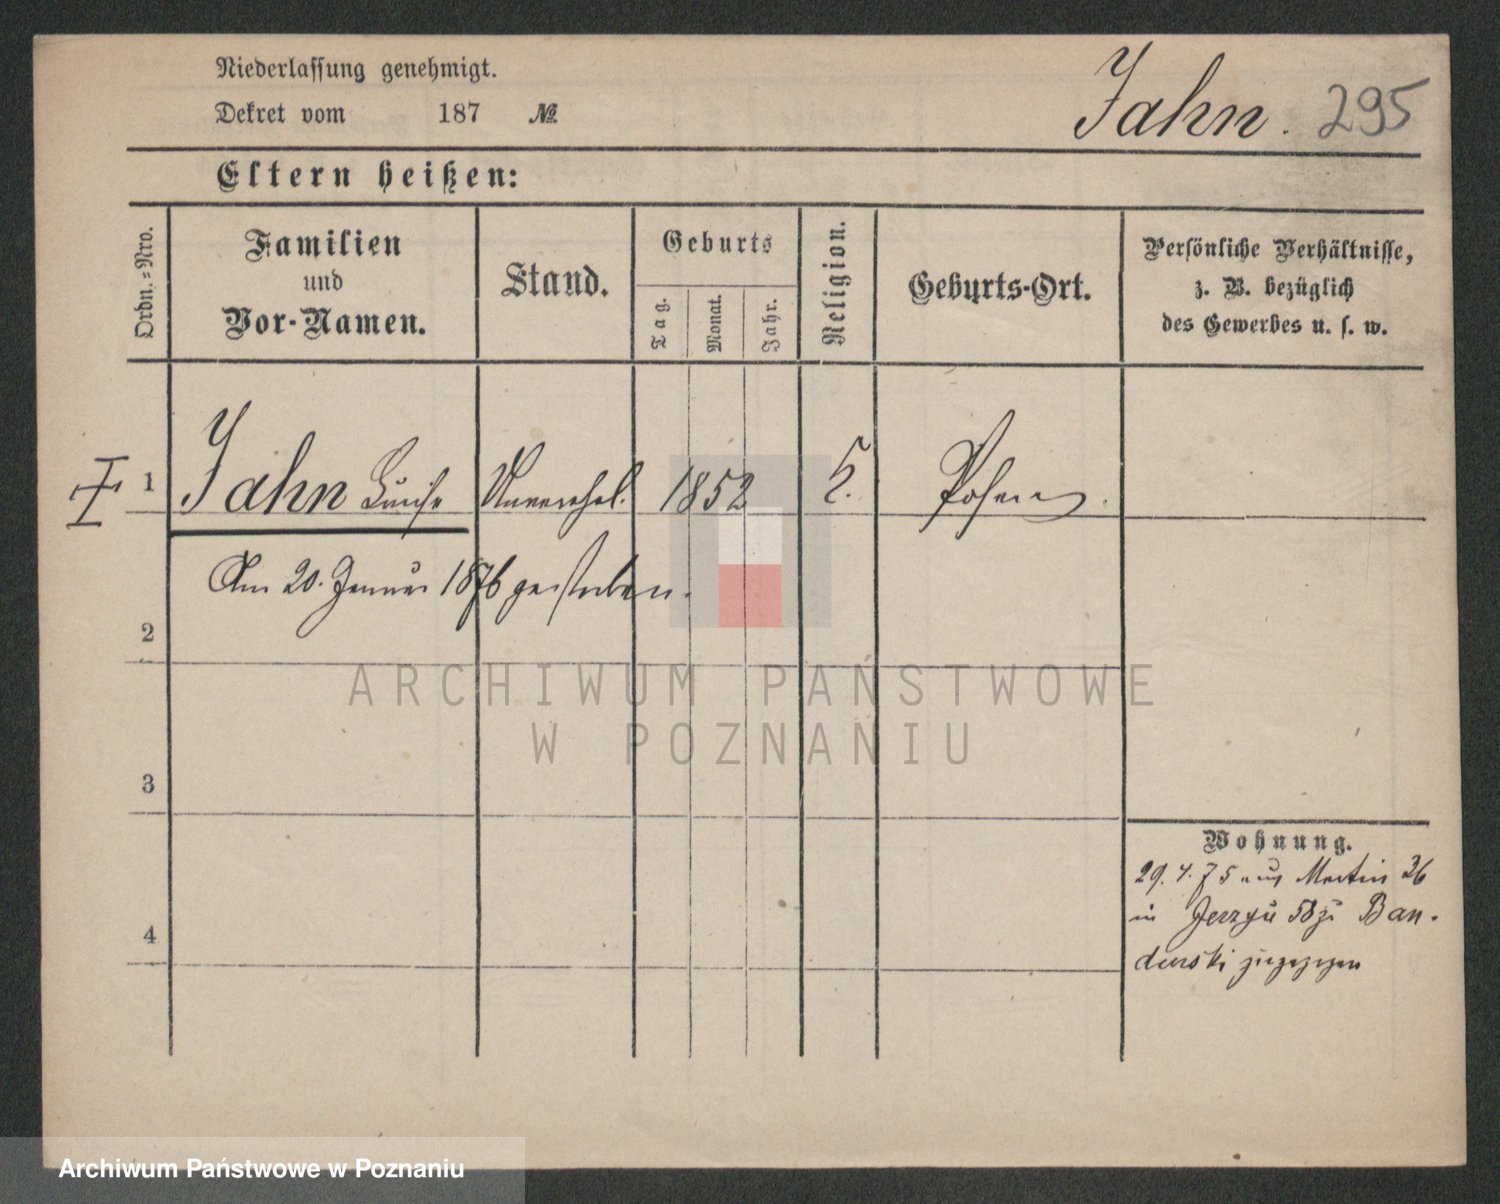 Niederlassung genehmigt.
Dekret vom 187 №
Jahn. 295
Eltern heißen:
Ordn.-Nro.
Familien
und
Vor-Namen.
Stand.
Geburts
Tag.
Monat.
Jahr.
Religion.
Geburts-Ort.
Persönliche Verhältnisse,
z. B. bezüglich
des Gewerbes u. s. w.
1 Jahn Unverehel. 1852 Posen.
Am 20. Januar 1876 gestorben.
2
3
4
Wohnung.
29. 4. 75 aus Martin 36
in Jerzyu 58 zu Ban-
durski zugezogen
ARCHIWUM PAŃSTWOWE
W POZNANIU
Archiwum Państwowe w Poznaniu